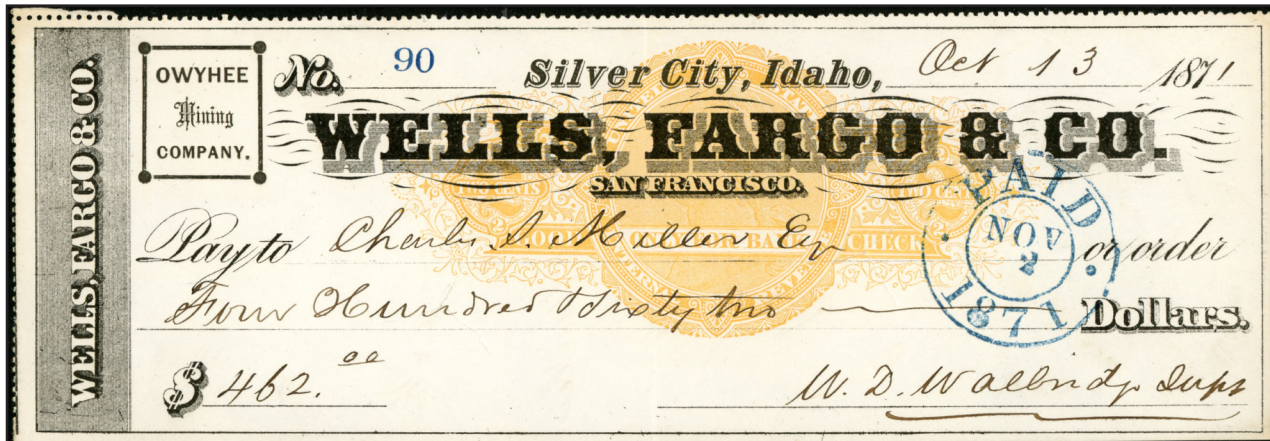 WELLS, FARGO & CO.
OWYHEE
Mining
COMPANY.
No. 90
Silver City, Idaho, Oct 13 1871
WELLS, FARGO & CO.
SAN FRANCISCO.
TWO CENTS
Pay to Charles S. Miller Esq or order
BANK CHECK
Four Hundred & Sixty two Dollars.
$ 462.00
W. D. Walbridge Supt
PAID
NOV
2
1871